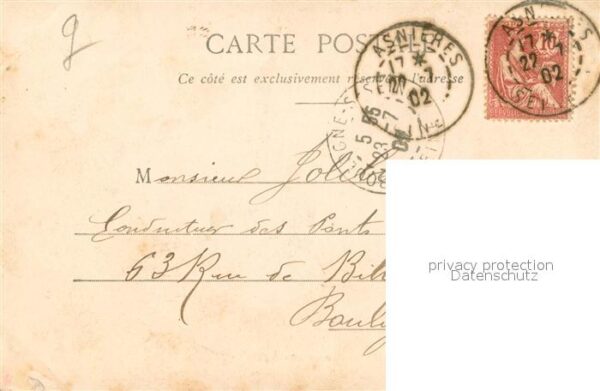 g
CARTE POSTALE
Ce côté est exclusivement réservé à l'adresse
ASNIERES
17 *
22 - 7
02
SEINE
ASNIERES
17 *
22 7
02
SEINE
10
5 55
23 7
02
Monsieur
Conducteur des Ponts
63 Rue de
privacy protection
Datenschutz